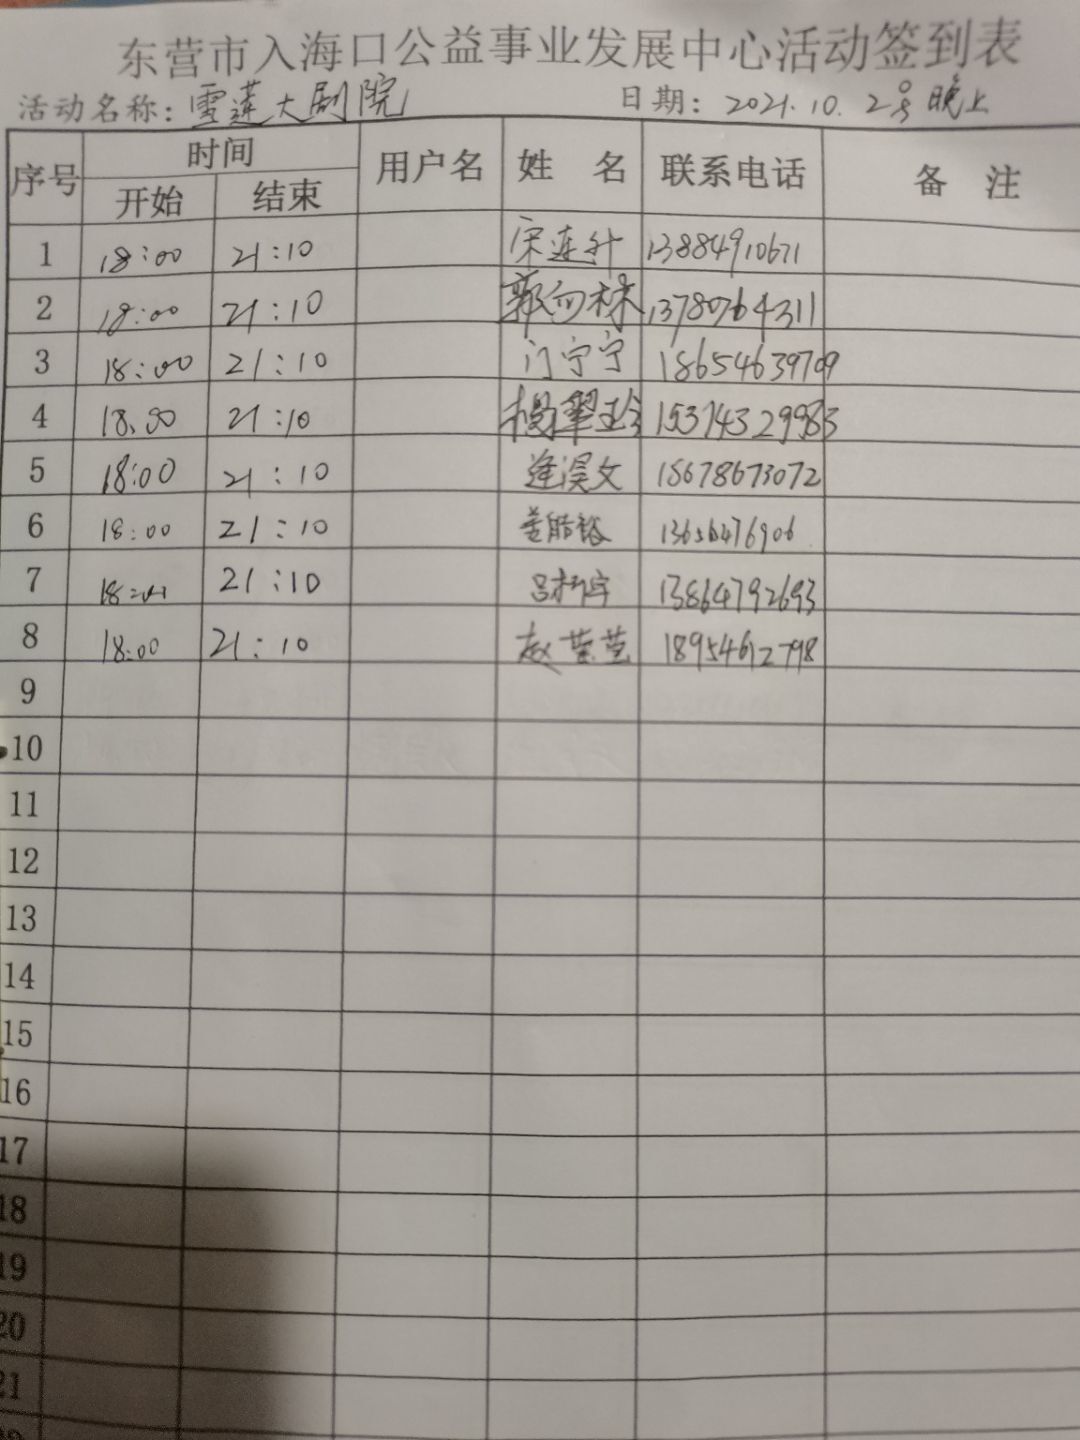 东营市入海口公益事业发展中心活动签到表
活动名称：雪莲大剧院 日期：2021.10.2号晚上
序号 时间 用户名 姓 名 联系电话 备 注
开始 结束
1 18:00 21:10 宋连升 13884910671
2 18:00 21:10 郭向林 13780764311
3 18:00 21:10 门宁宁 18654639709
4 18:00 21:10 杨翠玲 15314329983
5 18:00 21:10 逄淏文 18678673072
6 18:00 21:10
7 21:10 13864792693
8 18:00 21:10 赵 18954612798
9
10
11
12
13
14
15
16
17
18
19
20
21